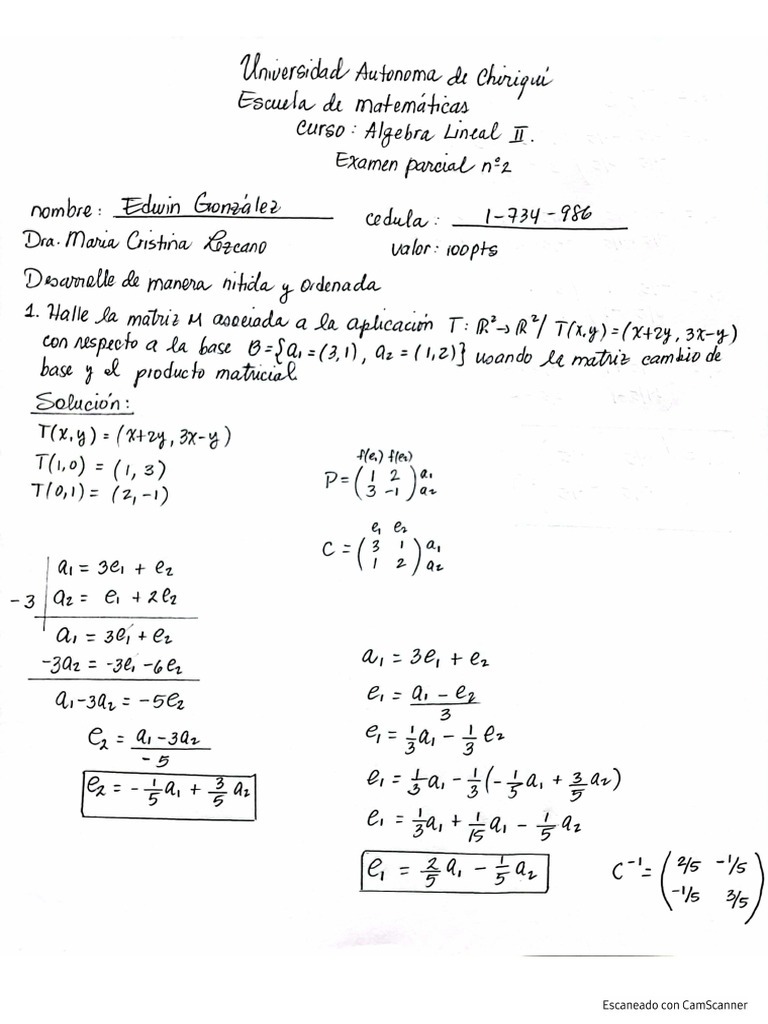 Universidad Autonoma de Chiriquí
Escuela de matemáticas
Curso: Algebra Lineal II.
Examen parcial nº2
nombre: Edwin González cedula: 1-734-986
Dra. Maria Cristina Lozcano valor: 100pts
Desarrolle de manera nítida y ordenada
1. Halle la matriz M asociada a la aplicación T: ℝ²→ℝ²/ T(x,y)=(x+2y, 3x-y)
con respecto a la base B={a₁=(3,1), a₂=(1,2)} usando la matriz cambio de
base y el producto matricial.
Solución:
T(x,y)=(x+2y, 3x-y)
T(1,0) = (1, 3)
T(0,1) = (2,-1)
f(e₁) f(e₂)
P=(1 2) a₁
(3 -1) a₂
e₁ e₂
C = (3 1) a₁
(1 2) a₂
a₁ = 3e₁ + e₂
-3 | a₂ = e₁ + 2e₂
a₁ = 3e₁ + e₂
-3a₂ = -3e₁ -6e₂
a₁-3a₂ = -5e₂
e₂ = a₁-3a₂
-5
e₂ = -1/5 a₁ + 3/5 a₂
a₁ = 3e₁ + e₂
e₁ = a₁ - e₂
3
e₁ = 1/3 a₁ - 1/3 e₂
e₁ = 1/3 a₁ - 1/3(-1/5 a₁ + 3/5 a₂)
e₁ = 1/3 a₁ + 1/15 a₁ - 1/5 a₂
e₁ = 2/5 a₁ - 1/5 a₂
C⁻¹= (2/5 -1/5)
(-1/5 3/5)
Escaneado con CamScanner